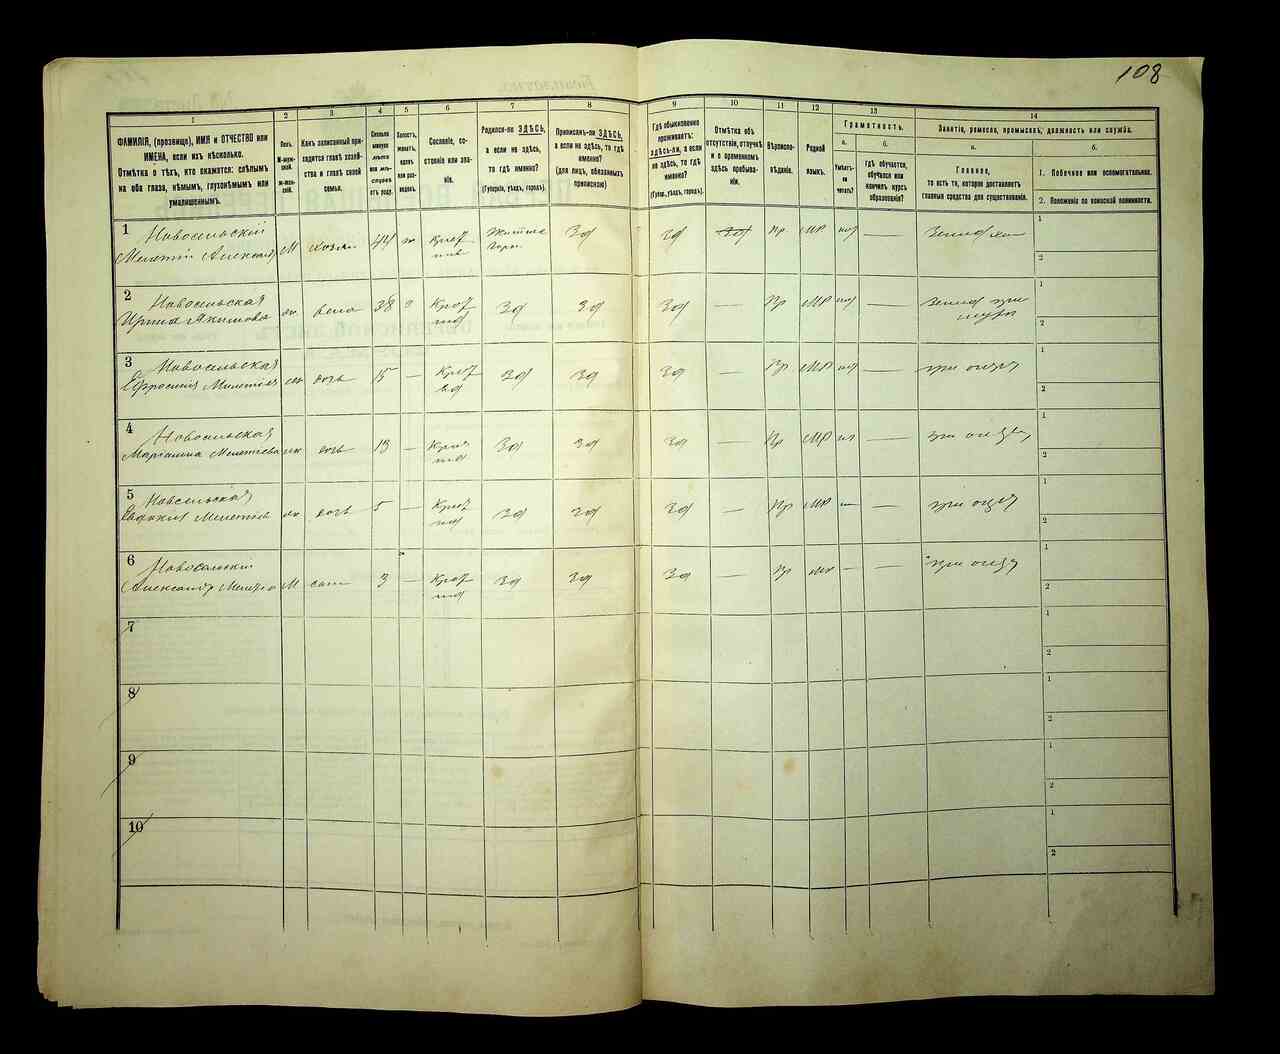 108
1
2
3
4
5
6
7
8
9
10
11
12
13
14
ФАМИЛІЯ, (прозвище), ИМЯ и ОТЧЕСТВО или
ИМЕНА, если ихъ нѣсколько.
Отмѣтка о тѣхъ, кто окажется: слѣпымъ
на оба глаза, нѣмымъ, глухонѣмымъ или
умалишеннымъ.
Полъ.
М-муж-
ской.
Ж-жен-
скій.
Какъ записанный при-
ходится главѣ хозяй-
ства и главѣ своей
семьи.
Сколько
минуло
лѣтъ
или мѣ-
сяцевъ
отъ роду.
Холостъ,
женатъ,
вдовъ
или раз-
веденъ.
Сословіе, со-
стояніе или зва-
ніе.
Родился-ли ЗДѢСЬ,
а если не здѣсь,
то гдѣ именно?
(Губернія, уѣздъ, городъ).
Приписанъ-ли ЗДѢСЬ,
а если не здѣсь, то гдѣ
именно?
(для лицъ, обязанныхъ
припискою)
Гдѣ обыкновенно
проживаетъ:
здѣсь-ли, а если
не здѣсь, то гдѣ
именно?
(Губер., уѣздъ, городъ).
Отмѣтка объ
отсутствіи, отлучкѣ
и о временномъ
здѣсь пребыва-
ніи.
Вѣроиспо-
вѣданіе.
Родной
языкъ.
Грамотность.
а.
Умѣетъ-
ли
читать?
б.
Гдѣ обучается,
обучался или
кончилъ курсъ
образованія?
Занятіе, ремесло, промыселъ, должность или служба.
а.
Главное,
то есть то, которое доставляетъ
главныя средства для существованія.
б.
1. Побочное или вспомогательное.
2. Положеніе по воинской повинности.
1
Новосельскій
Мелетій Александ
М
хозяи
44
ж
зд
зд
зд
Пр
МР
—
1
2
2
Новосельская
Ирина Якимова
жена
38
зд
зд
зд
—
Пр
МР
—
1
2
3
Новосельская
Ефросинія Мелетіев
дочь
15
—
зд
зд
зд
—
Пр
МР
—
при отцѣ
1
2
4
Новосельская
Маріанна Мелетіева
дочь
13
—
зд
зд
зд
—
Пр
МР
—
при отцѣ
1
2
5
Новсельская
Евдокия Мелетіев
дочь
5
—
зд
зд
зд
—
Пр
МР
—
—
при отцѣ
1
2
6
Новосельскій
Александр
М
сын
3
—
зд
зд
зд
—
Пр
МР
—
—
при отцѣ
1
2
7
1
2
8
1
2
9
1
2
10
1
2